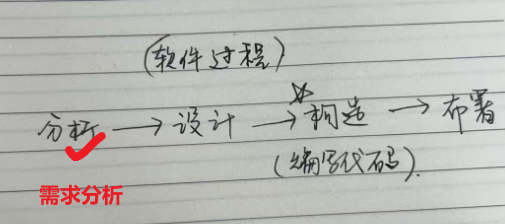 (软件过程)
分析 → 设计 → 构造 → 布署
(编写代码).
需求分析